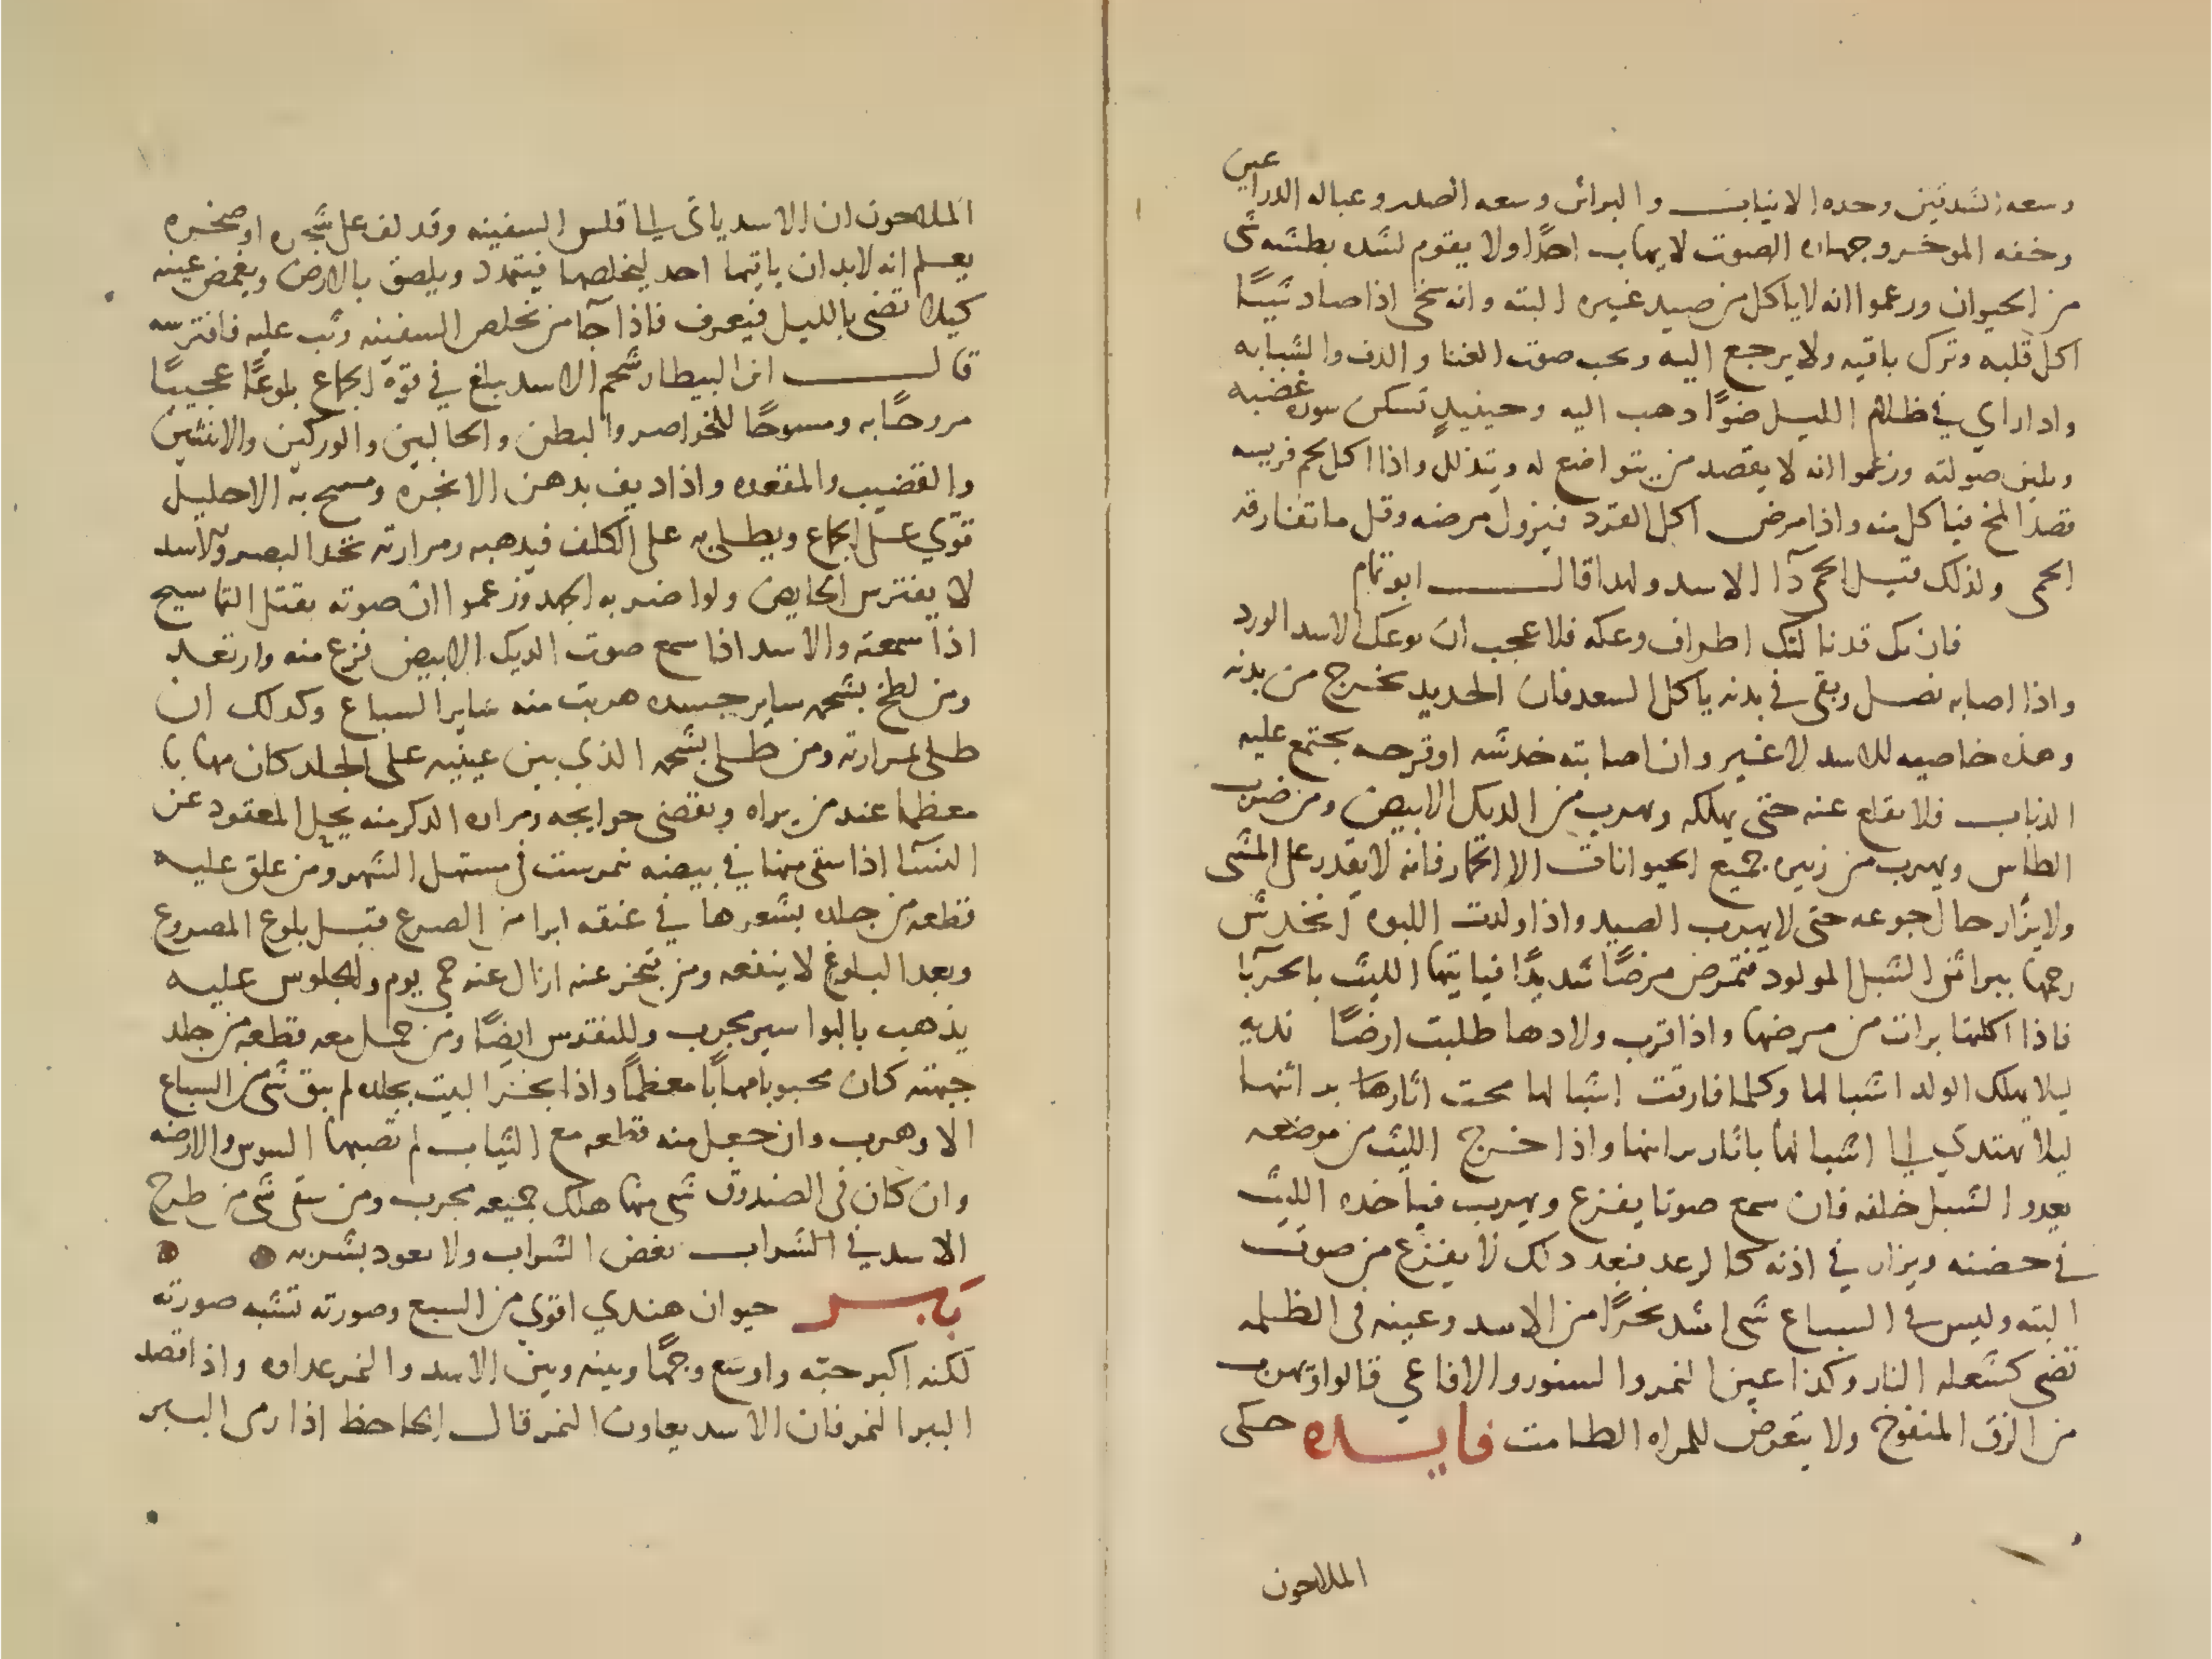 وسعه الشدقين وحده الانياب والبراثن وسعه الصدر وعباله الدراعين
وخفه الموخر وجهاره الصوت لا يهاب احدًا ولا يقوم لشده بطشه شى
من الحيوان وزعموا انه لا ياكل من صيد غيره البته وانه سخى اذا صاد شيًا
اكل قلبه وترك باقيه ولا يرجع اليه ويحب صوت الغنا والدف والشبابه
واذا راي في ظلام الليل ضوًا ذهب اليه وحينيذٍ تسكن سوره غضبه
وتلين صولته وزعموا انه لا يقصد من يتواضع له ويتذلل واذا اكل لحم فريسه
قصد الملح فياكل منه واذا مرض اكل القرد فيزول مرضه وقل ما تفارقه
الحمى ولذلك قيل الحمى دآ الاسد ولهدا قال ابو تمام
فان يك قد نالتك اطراف وعكه فلا عجب ان يوعك الاسد الورد
واذا اصابه نصل وبقى في بدنه ياكل السعد فان الحديد يخرج من بدنه
وهذه خاصيه للاسد لا غير وان اصابته خدشه او قرحه يجتمع عليه
الدباب فلا يقلع عنه حتى يهلكه ويهرب من الديك الابيض ومن ضرب
الطاس ويهرب من زييره جميع الحيوانات الا الحمار فانه لا يقدر على المشى
ولا يزار حال جوعه حتى لا يهرب الصيد واذا ولدت اللبوه انخدش
رحمها ببراثن الشبل المولود فتمرض مرضًا شديدًا فياتيها الليث بالحربا
فاذا اكلتها برات من مرضها واذا قرب ولادها طلبت ارضًا نديه
ليلا يهلك الولد اشبالها وكلما فارقت اشبالها محت اثارها براثنها
ليلا يهتدي الى اشبالها باثار براثنها واذا خرج الليث من موضعه
يعدو الشبل خلفه فان سمع صوتا يفزع ويهرب فياخذه الليث
في حضنه ويزار في اذنه كالرعد فبعد دلك لا يفزع من صوت
البته وليس في السباع شى اشد بخرًا من الاسد وعينه فى الظلمه
تضى كشعله النار وكذا عين النمر والسنور والافاعي قالوا ويهرب
من الزق المنفوخ ولا يتعرض للمراه الطامث فايده حكى
الملاحون
الملاحون ان الاسد ياتى الى قلس السفينه وقد لف على شجره او صخره
يعلم انه لا بد ان ياتيها احد ليخلصها فيتمدد ويلصق بالارض ويغمض عينه
كيلا تضى بالليل فيعرف فاذا جآ من يخلص السفينه وثب عليه فافترسه
قال ابن البيطار شحم الاسد يبلغ في قوة الجماع بلوغًا عجيبًا
مروحًا به ومسوحًا للخواصر والبطن والحالبين والوركين والانثيين
والقضيب والمقعده واذا ديف بدهن الانجره ومسح به الاحليل
قوي على الجماع ويطلى به على الكلف فيدهبه ومرارته تحد البصر والاسد
لا يفترس الحايض ولو اضر به الجهد وزعموا ان صوته يقتل التماسيح
اذا سمعته والاسد اذا سمع صوت الديك الابيض فزع منه وارتعد
ومن لطخ بشحمه ساير جسده هربت منه ساير السباع وكدلك ان
طلى بمرارته ومن طلى بشحمه الذي بين عينيه على الجلد كان مهابا
معظما عند من يراه ويقضى حوايجه ومراره الدكر منه يحل المعقود عن
النسآ اذا سقى منها في بيضه نمرست فى مستهل الشهر ومن علق عليه
قطعه من جلده بشعرها في عنقه ابرا من الصرع قبل بلوغ المصروع
وبعد البلوغ لا ينفعه ومن تبخر عنه ازال عنه حمى يوم والجلوس عليه
يذهب بالبواسير مجرب وللنقرس ايضًا ومن حمل معه قطعه من جلد
جبهته كان محبوبا مهابًا معظمًا واذا بخر البيت بجلده لم يبق شى من السباع
الا وهرب وان جعل منه قطعه مع الثياب لم تصبها السوس والارضه
وان كان فى الصندوق شى منها هلك جميعه مجرب ومن سقى شى من طرح
الاسد في الشراب بغض الشراب ولا يعود يشربه
ببر حيوان هندي اقوى من السبع وصورته تشبه صورته
لكنه اكبر جثه واوسع وجهًا وبينه وبين الاسد والنمر عداوه واذا قصد
الببر النمر فان الاسد يعاون النمر قال الجاحظ اذا رمى الببر